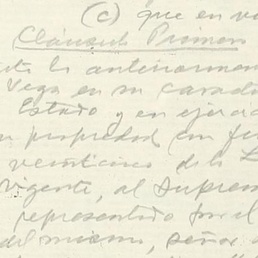 (c) que en v
Cláusula Primera
te lo anteriormen
Vega en su carác
Estado y en ejerci
propiedad con fe
veinticinco de la L
vigente, al Suprem
representado por el
del mismo, señor